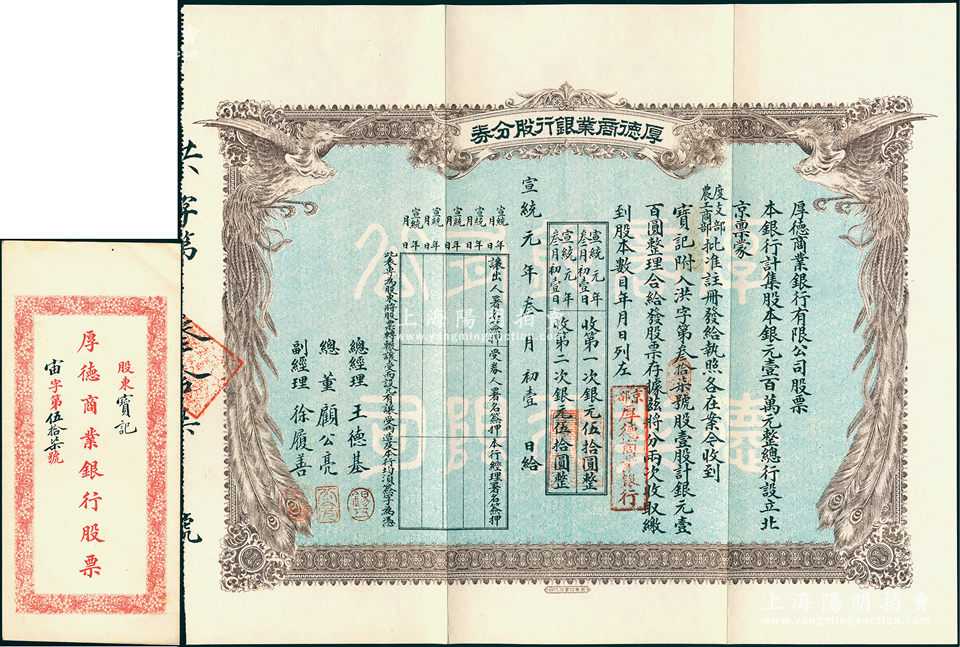 厚德商業銀行股分券
厚德商業銀行有限公司股票
本銀行計集股本銀元壹百萬元整總行設立北
京稟蒙
度支部
農工商部
批准註冊發給執照各在案今收到
寶記附入洪字第叁拾柒號股壹股計銀元壹
百圓整理合給發股票存據茲將分兩次收取繳
到股本數目年月日列左
宣統元年
叁月初壹日
收第一次銀元伍拾圓整
宣統元年
叁月初壹日
收第二次銀元伍拾圓整
京都
厚德商業銀行
宣統元年叁月初壹日給
讓出人署名簽押
受券人署名簽押
本行經理署名簽押
宣統 年
月 日
宣統 年
月 日
宣統 年
月 日
宣統 年
月 日
宣統 年
月 日
總經理 王德基
總董 顧公亮
副經理 徐履善
洪字第叁拾柒號
股東寶記
厚德商業銀行股票
宙字第伍拾柒號
上海陽明拍賣
上海陽明拍賣
www.yangmingauction.com